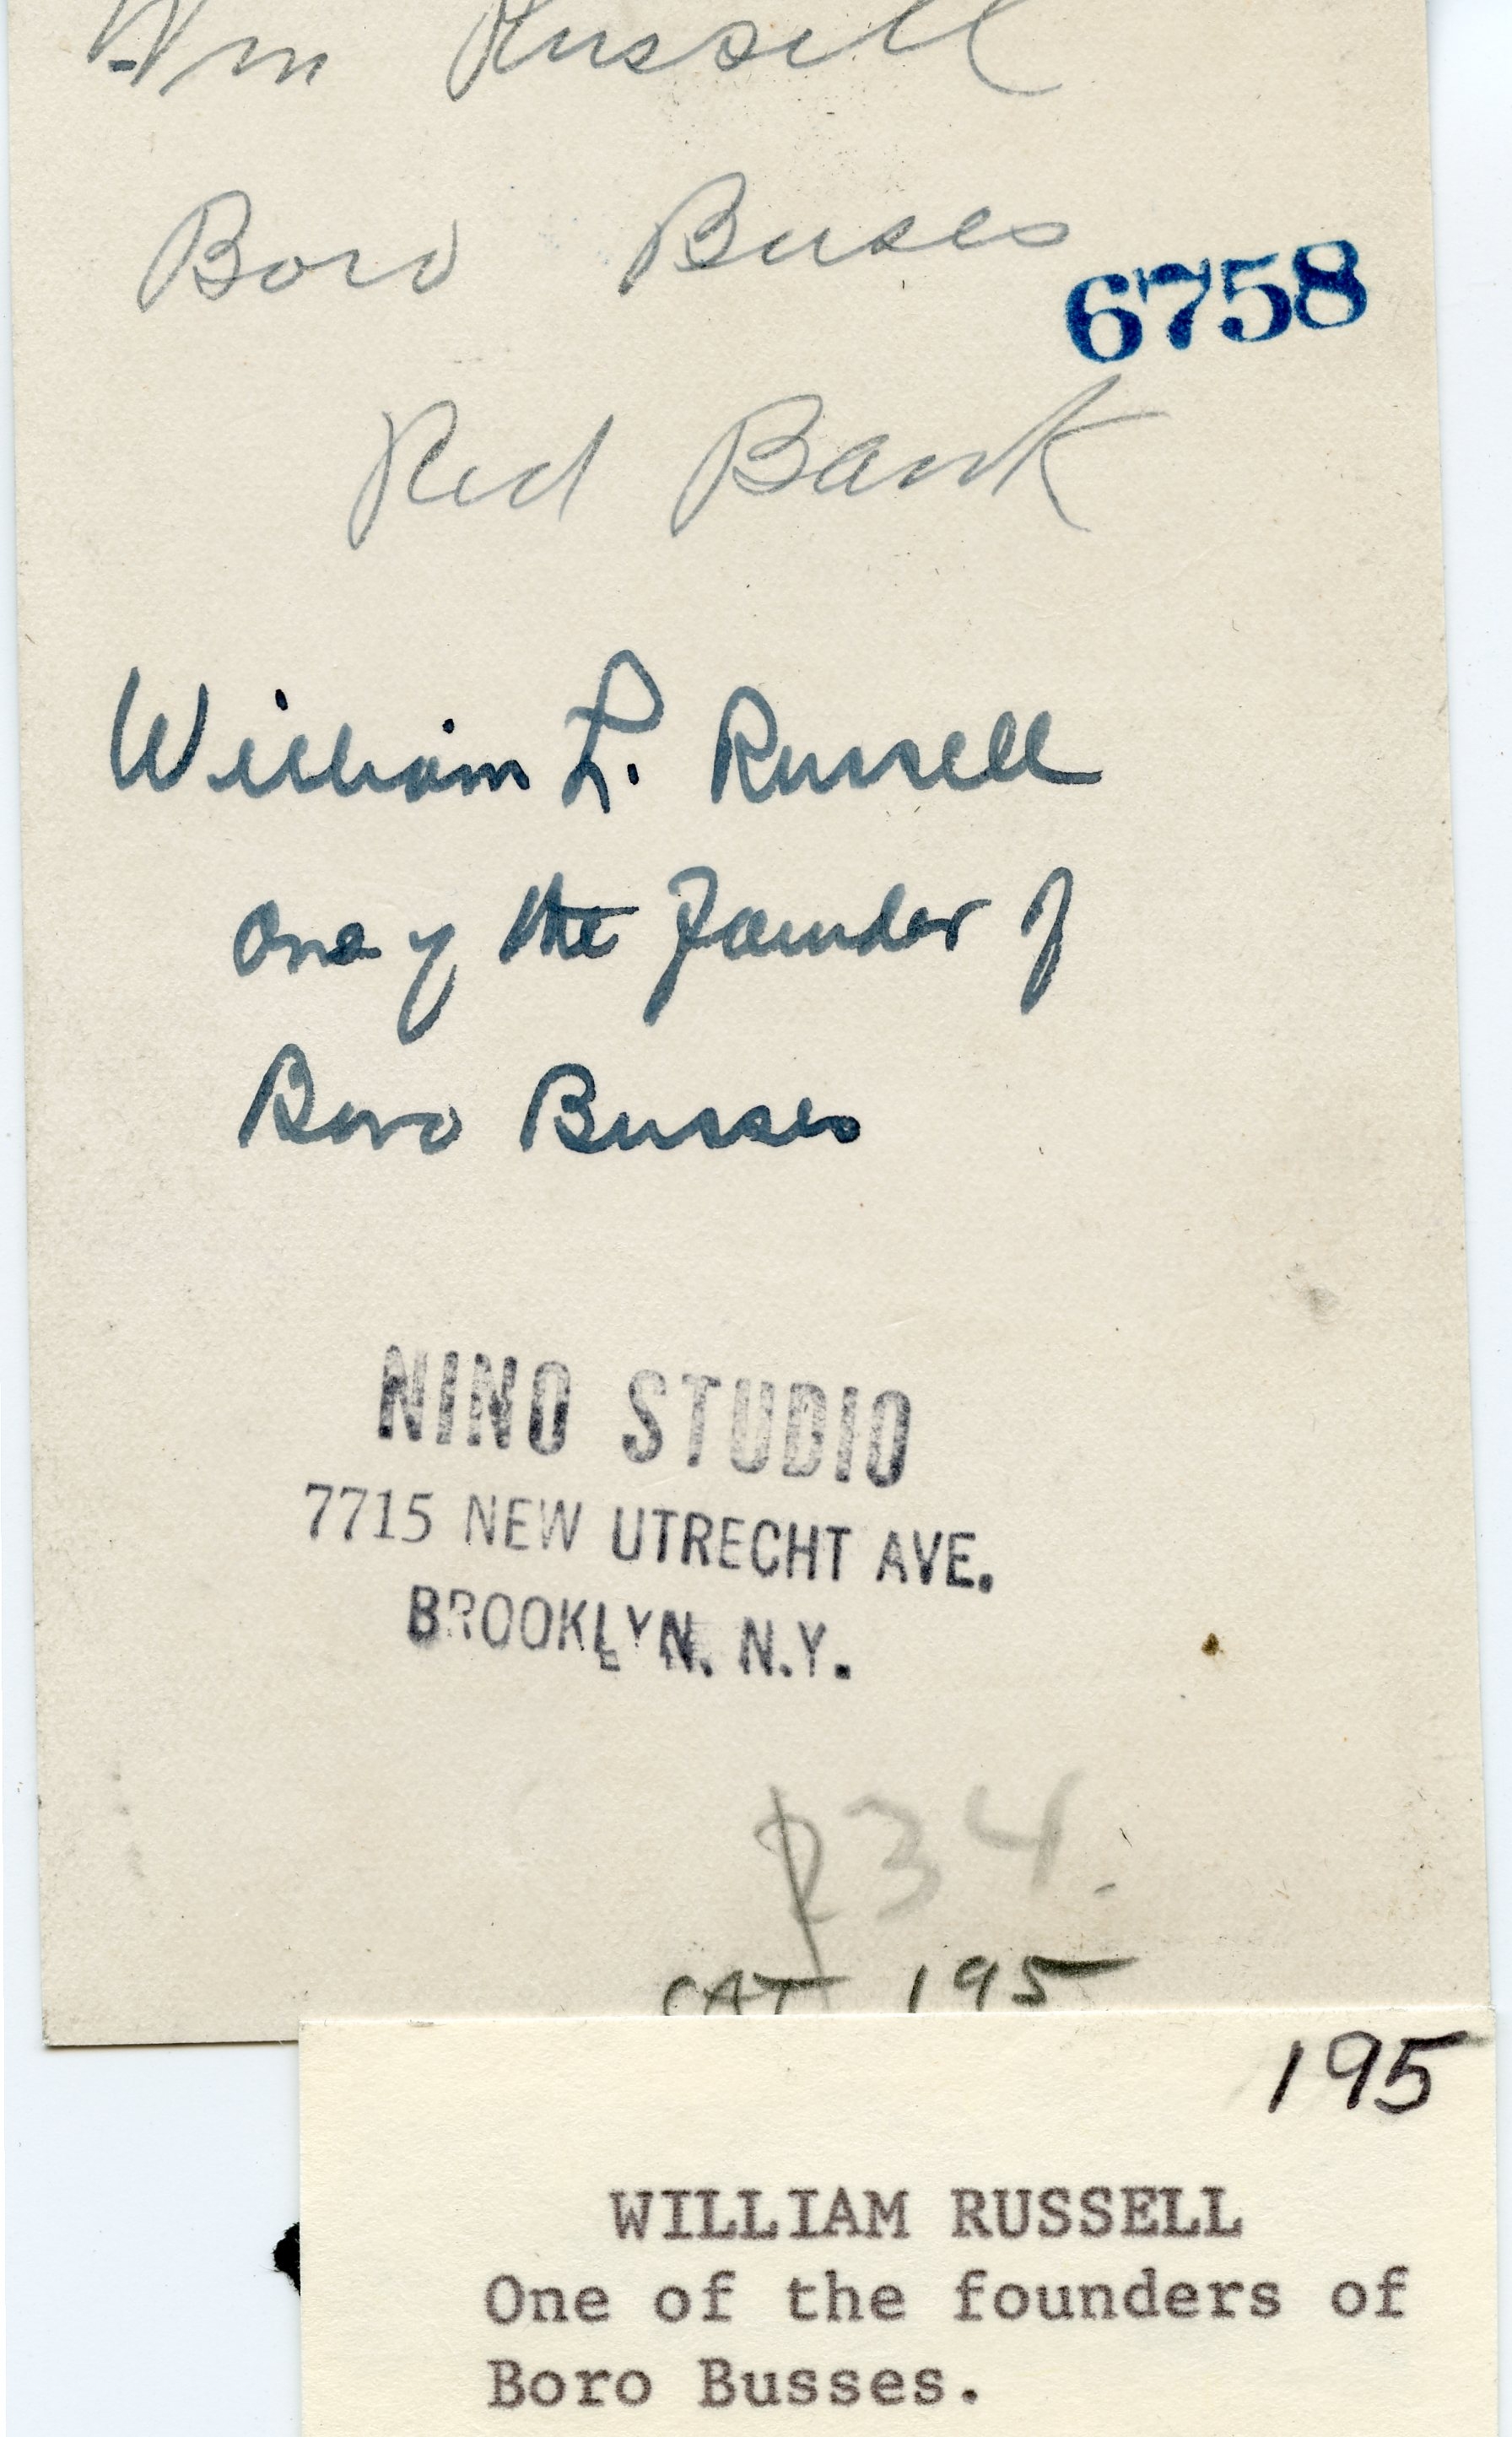 Wm Russell
Boro Buses
6758
Red Bank
William L. Russell
one of the founder of
Boro Busses
NINO STUDIO
7715 NEW UTRECHT AVE.
BROOKLYN. N.Y.
234.
CAT 195
195
WILLIAM RUSSELL
One of the founders of
Boro Busses.